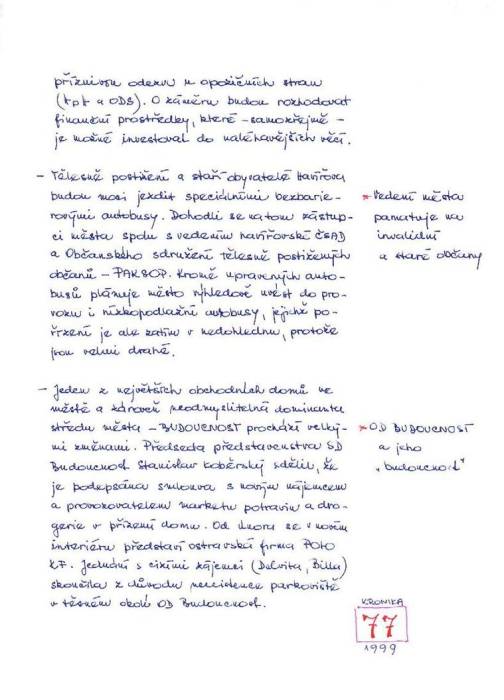 příznivou odezvu u opozičních stran
(kpt a ODS). O záměru budou rozhodovat
finanční prostředky, které – samozřejmě –
je možné investovat do naléhavějších věcí.
– Tělesně postižení a staří obyvatelé Havířova
budou moci jezdit speciálními bezbarié-
rovými autobusy. Dohodli se na tom zástup-
ci města spolu s vedením havířovské ČSAD
a Občanského sdružení tělesně postižených
občanů – PAKSOP. Kromě upravených auto-
busů plánuje město výhledově uvést do pro-
vozu i nízkopodlažní autobusy, jejichž po-
řízení je ale zatím v nedohlednu, protože
jsou velmi drahé.
* Vedení města
pamatuje na
invalidní
a staré občany
– Jeden z největších obchodních domů ve
městě a zároveň neodmyslitelná dominanta
středu města – BUDOUCNOST prochází velký-
mi změnami. Předseda představenstva SD
Budoucnost Stanislav Koběrský sdělil, že
je podepsána smlouva s novým nájemcem
a provozovatelem marketu potravin a dro-
gerie v přízemí domu. Od února se v novém
interiéru představí ostravská firma
K.F. Jednání s cizími zájemci (Delvita, Billa)
skončila z důvodu neexistence parkoviště
v těsném okolí OD Budoucnost.
* OD BUDOUCNOST
a jeho
„budoucnost"
KRONIKA
77
1999